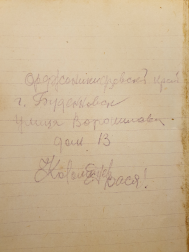 Орджоникидзевский край
г. Буденновск
улица Ворошилова
дом 13
Вася!